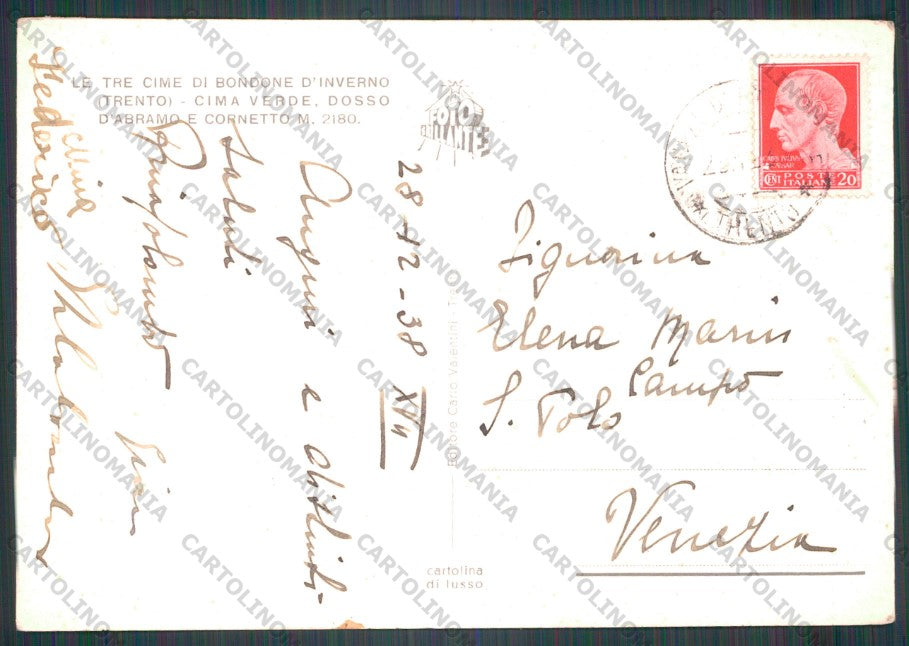 LE TRE CIME DI BONDONE D'INVERNO
(TRENTO) - CIMA VERDE, DOSSO
D'ABRAMO E CORNETTO M. 2180.
FOTO
BRILLANTE
28-12-38 XVII
Auguri e distinti
saluti
Federico
Signorina
Elena Marin
Campo
S. Polo
Venezia
POSTE
ITALIANE
CENT 20
TRENTO
Editore Carlo Valentini - T
cartolina
di lusso
CARTOLINOMANIA